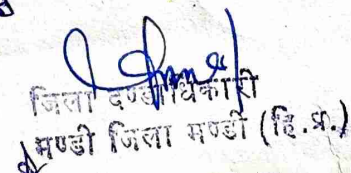 जिला दण्डाधिकारी
मण्डी जिला मण्डी (हि.प्र.)